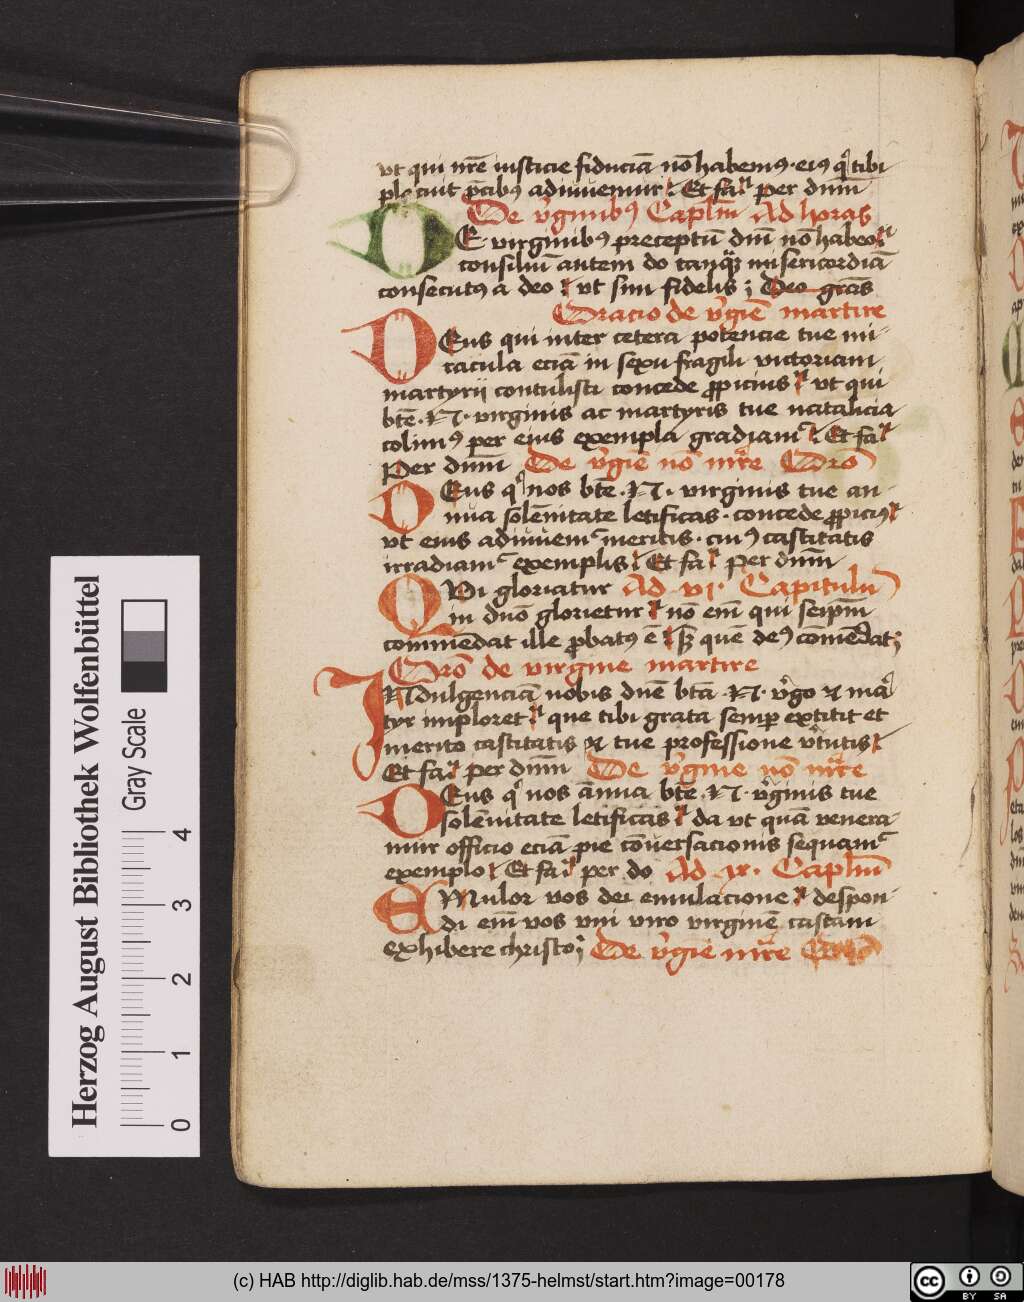 vt qui nr̄e iusticie fiduciā nō habemꝰ · eiꝰ qͥ tibi
placuit p̄cibꝰ adiuuemur Et fač per dnm̄
De v̓ginibꝰ Capl̄m Ad horas
DE virginibꝰ preceptū dnī nō habeo
consiliū autem do tanqͣꝫ misericordiā
consecutꝰ a deo vt sim fidelis ; Deo gras̄
Oracio de v̓gīe martire
DEus qui inter cetera potencie tue mi-
racula eciā in sexu fragili victoriam
martyrii contulisti concede ꝓpicius vt qui
btē · N · virginis ac martyris tue natalicia
colimꝰ per eius exempla gradiam̉ Et fač
Per dnm̄ De v̓gīe nō mr̄e Oro
DEus qͥ nos btē · N · virginis tue an-
nua solēnitate letificas · concede ꝓpiciꝰ
vt eius adiuuem̉ meritis · cuiꝰ castitatis
irradiam̉ exemplis Et fač per dnm̄
QVi gloriatur Ad vi · Capitulū
in dn̄o glorietur nō eni̅ qui seip̄m
commēdat ille ꝓbatꝰ ē sꝫ quē deꝰ cōmēdat ;
Oro de virgine martire
INdulgenciā nobis dnē btā · N · v̓go ⁊ mar̄
tyr imploret que tibi grata semꝑ extitit et
merito castitatis ⁊ tue professione v̓tutis
Et fač per dnm̄ De v̓gine nō mr̄e
DEus qͥ nos ānua btē · N · v̓ginis tue
solēnitate letificas da vt quā venera-
mur officio eciā pie cōuersacionis sequam̉
exemplo Et fač per do Ad ix · Capl̄m
EMulor vos dei emulacione despon-
di eni̅ vos vni viro virginē castam
exhibere christo ; De v̓gīe mr̄e
Herzog August Bibliothek Wolfenbüttel
Gray Scale
0 1 2 3 4
(c) HAB http://diglib.hab.de/mss/1375-helmst/start.htm?image=00178
cc BY SA